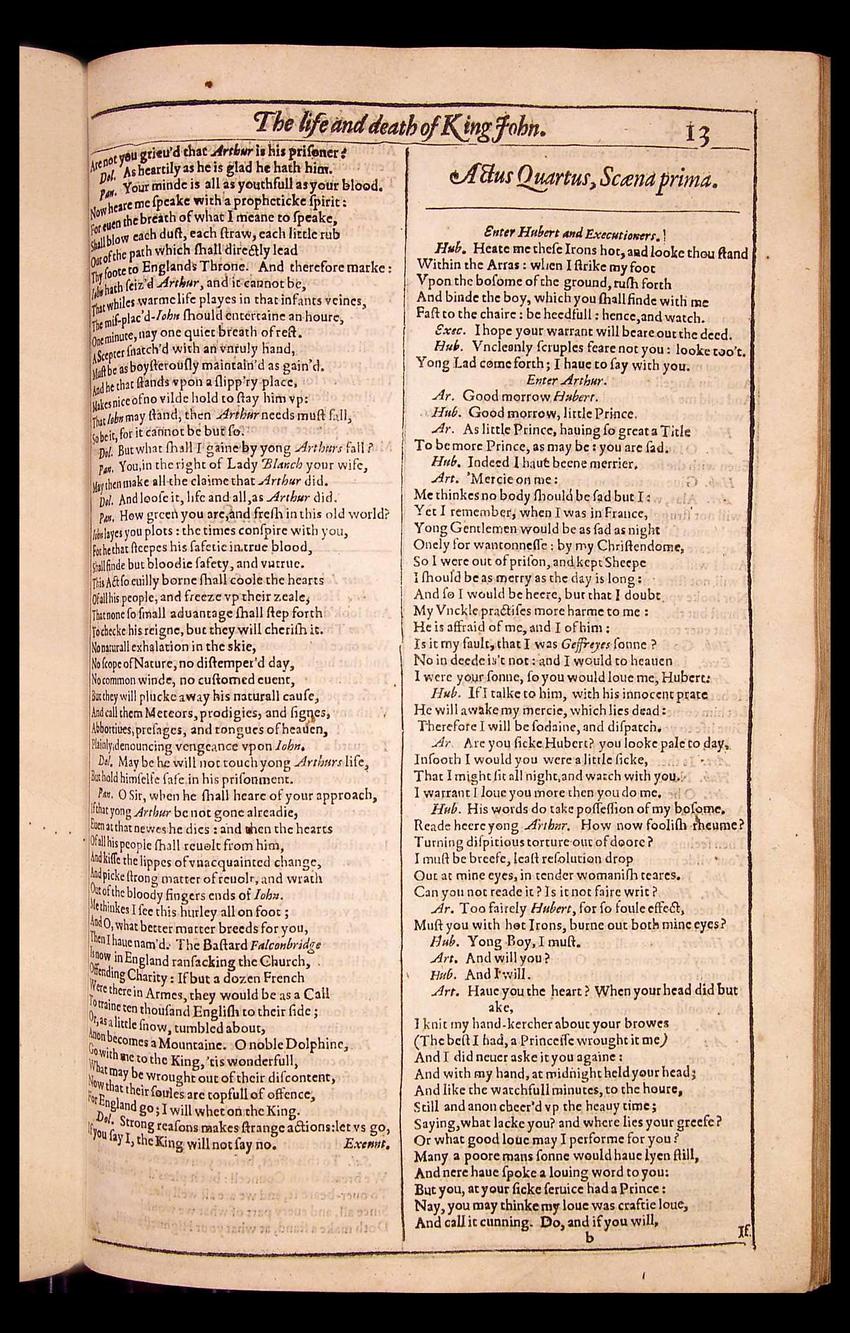 The life and death of King Iohn.
13
Are not you grieu'd that Arthur is his prisoner?
Dol. As heartily as he is glad he hath him.
Pan. Your minde is all as youthfull as your blood.
Now heare me speake with a propheticke spirit:
For euen the breath of what I meane to speake,
Shall blow each dust, each straw, each little rub
Out of the path which shall directly lead
Thy foote to Englands Throne. And therefore marke:
Iohn hath seiz'd Arthur, and it cannot be,
That whiles warme life playes in that infants veines,
The mis-plac'd-Iohn should entertaine an houre,
One minute, nay one quiet breath of rest.
A Scepter snatch'd with an vnruly hand,
Must be as boysterously maintain'd as gain'd.
And he that stands vpon a slipp'ry place,
Makes nice of no vilde hold to stay him vp:
That Iohn may stand, then Arthur needs must fall,
So be it, for it cannot be but so.
Dol. But what shall I gaine by yong Arthurs fall?
Pan. You, in the right of Lady Blanch your wife,
May then make all the claime that Arthur did.
Dol. And loose it, life and all, as Arthur did.
Pan. How green you are, and fresh in this old world?
Iohn layes you plots: the times conspire with you,
For he that steepes his safetie in true blood,
Shall finde but bloodie safety, and vntrue.
This Act so euilly borne shall coole the hearts
Of all his people, and freeze vp their zeale,
That none so small aduantage shall step forth
To checke his reigne, but they will cherish it.
No naturall exhalation in the skie,
No scope of Nature, no distemper'd day,
No common winde, no customed euent,
But they will plucke away his naturall cause,
And call them Meteors, prodigies, and signes,
Abbortiues, presages, and tongues of heauen,
Plainly denouncing vengeance vpon Iohn.
Dol. May be he will not touch yong Arthurs life,
But hold himselfe safe in his prisonment.
Pan. O Sir, when he shall heare of your approach,
If that yong Arthur be not gone alreadie,
Euen at that newes he dies: and then the hearts
Of all his people shall reuolt from him,
And kisse the lippes of vnacquainted change,
And picke strong matter of reuolt, and wrath
Out of the bloody fingers ends of Iohn.
Me thinkes I see this hurley all on foot;
And O, what better matter breeds for you,
Then I haue nam'd. The Bastard Falconbridge
Is now in England ransacking the Church,
Offending Charity: If but a dozen French
Were there in Armes, they would be as a Call
To traine ten thousand English to their side;
Or, as a little snow, tumbled about,
Anon becomes a Mountaine. O noble Dolphine,
Go with me to the King, 'tis wonderfull,
What may be wrought out of their discontent,
Now that their soules are topfull of offence,
For England go; I will whet on the King.
Dol. Strong reasons makes strange actions: let vs go,
If you say I, the King will not say no. Exeunt.
Actus Quartus, Scæna prima.
Enter Hubert and Executioners.
Hub. Heate me these Irons hot, and looke thou stand
Within the Arras: when I strike my foot
Vpon the bosome of the ground, rush forth
And binde the boy, which you shall finde with me
Fast to the chaire: be heedfull: hence, and watch.
Exec. I hope your warrant will beare out the deed.
Hub. Vncleanly scruples feare not you: looke too't.
Yong Lad come forth; I haue to say with you.
Enter Arthur.
Ar. Good morrow Hubert.
Hub. Good morrow, little Prince.
Ar. As little Prince, hauing so great a Title
To be more Prince, as may be: you are sad.
Hub. Indeed I haue beene merrier.
Art. 'Mercie on me:
Me thinkes no body should be sad but I:
Yet I remember, when I was in France,
Yong Gentlemen would be as sad as night
Onely for wantonnesse: by my Christendome,
So I were out of prison, and kept Sheepe
I should be as merry as the day is long:
And so I would be heere, but that I doubt
My Vnckle practises more harme to me:
He is affraid of me, and I of him:
Is it my fault, that I was Geffreyes sonne?
No in deede is't not: and I would to heauen
I were your sonne, so you would loue me, Hubert:
Hub. If I talke to him, with his innocent prate
He will awake my mercie, which lies dead:
Therefore I will be sodaine, and dispatch.
Ar. Are you sicke Hubert? you looke pale to day,
Insooth I would you were a little sicke,
That I might sit all night, and watch with you.
I warrant I loue you more then you do me.
Hub. His words do take possession of my bosome.
Reade heere yong Arthur. How now foolish rheume?
Turning dispitious torture out of doore?
I must be breefe, least resolution drop
Out at mine eyes, in tender womanish teares.
Can you not reade it? Is it not faire writ?
Ar. Too fairely Hubert, for so foule effect,
Must you with hot Irons, burne out both mine eyes?
Hub. Yong Boy, I must.
Art. And will you?
Hub. And I will.
Art. Haue you the heart? When your head did but
ake,
I knit my hand-kercher about your browes
(The best I had, a Princesse wrought it me)
And I did neuer aske it you againe:
And with my hand, at midnight held your head;
And like the watchfull minutes, to the houre,
Still and anon cheer'd vp the heauy time;
Saying, what lacke you? and where lies your greefe?
Or what good loue may I performe for you?
Many a poore mans sonne would haue lyen still,
And nere haue spoke a louing word to you:
But you, at your sicke seruice had a Prince:
Nay, you may thinke my loue was craftie loue,
And call it cunning. Do, and if you will,
b
If